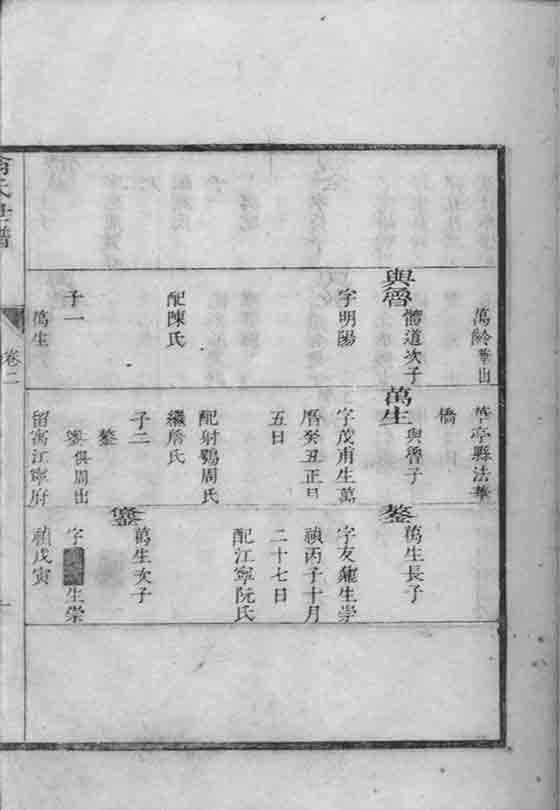 萬齡華出
與魯
體道次子
字明陽
配陳氏
子一
萬生
華亭縣法華
橋
萬生
與魯子
字茂甫生萬
曆癸丑正月
五日
配射周氏
繼詹氏
子二
鏊
俱周出
留寓江寧府
鏊
萬生長子
字友生崇
禎丙子十月
二十七日
配江寧阮氏
萬生次子
字生崇
禎戊寅
氏世譜
卷二